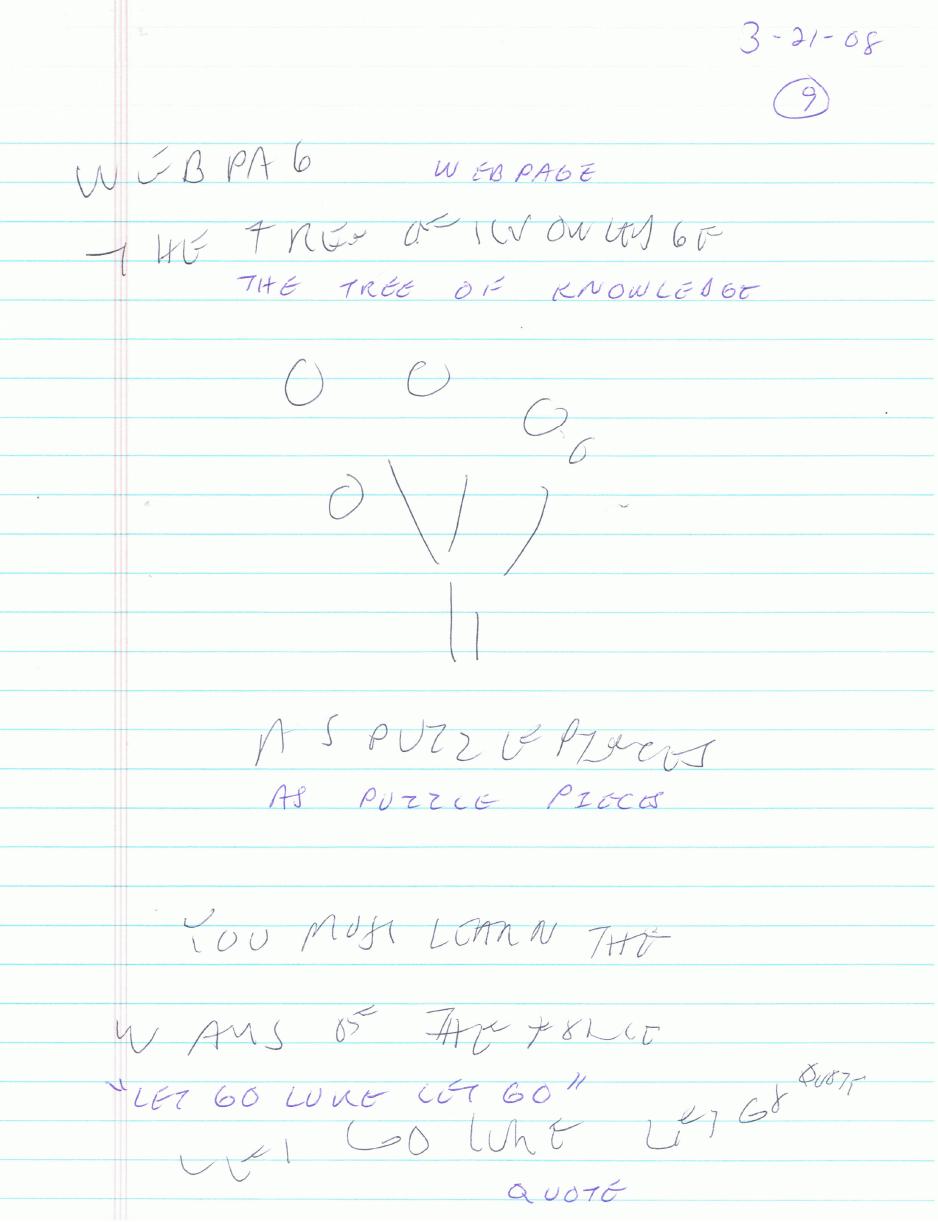 3-21-08
9
WEBPAG WEBPAGE
THE TREE OF KNOWLEDGE
THE TREE OF KNOWLEDGE
AS PUZZLE PIECES
AS PUZZLE PIECES
YOU MUST LEARN THE
WAYS OF THE FORCE
"LET GO LUKE LET GO" QUOTE
LET GO LUKE LET GO
QUOTE